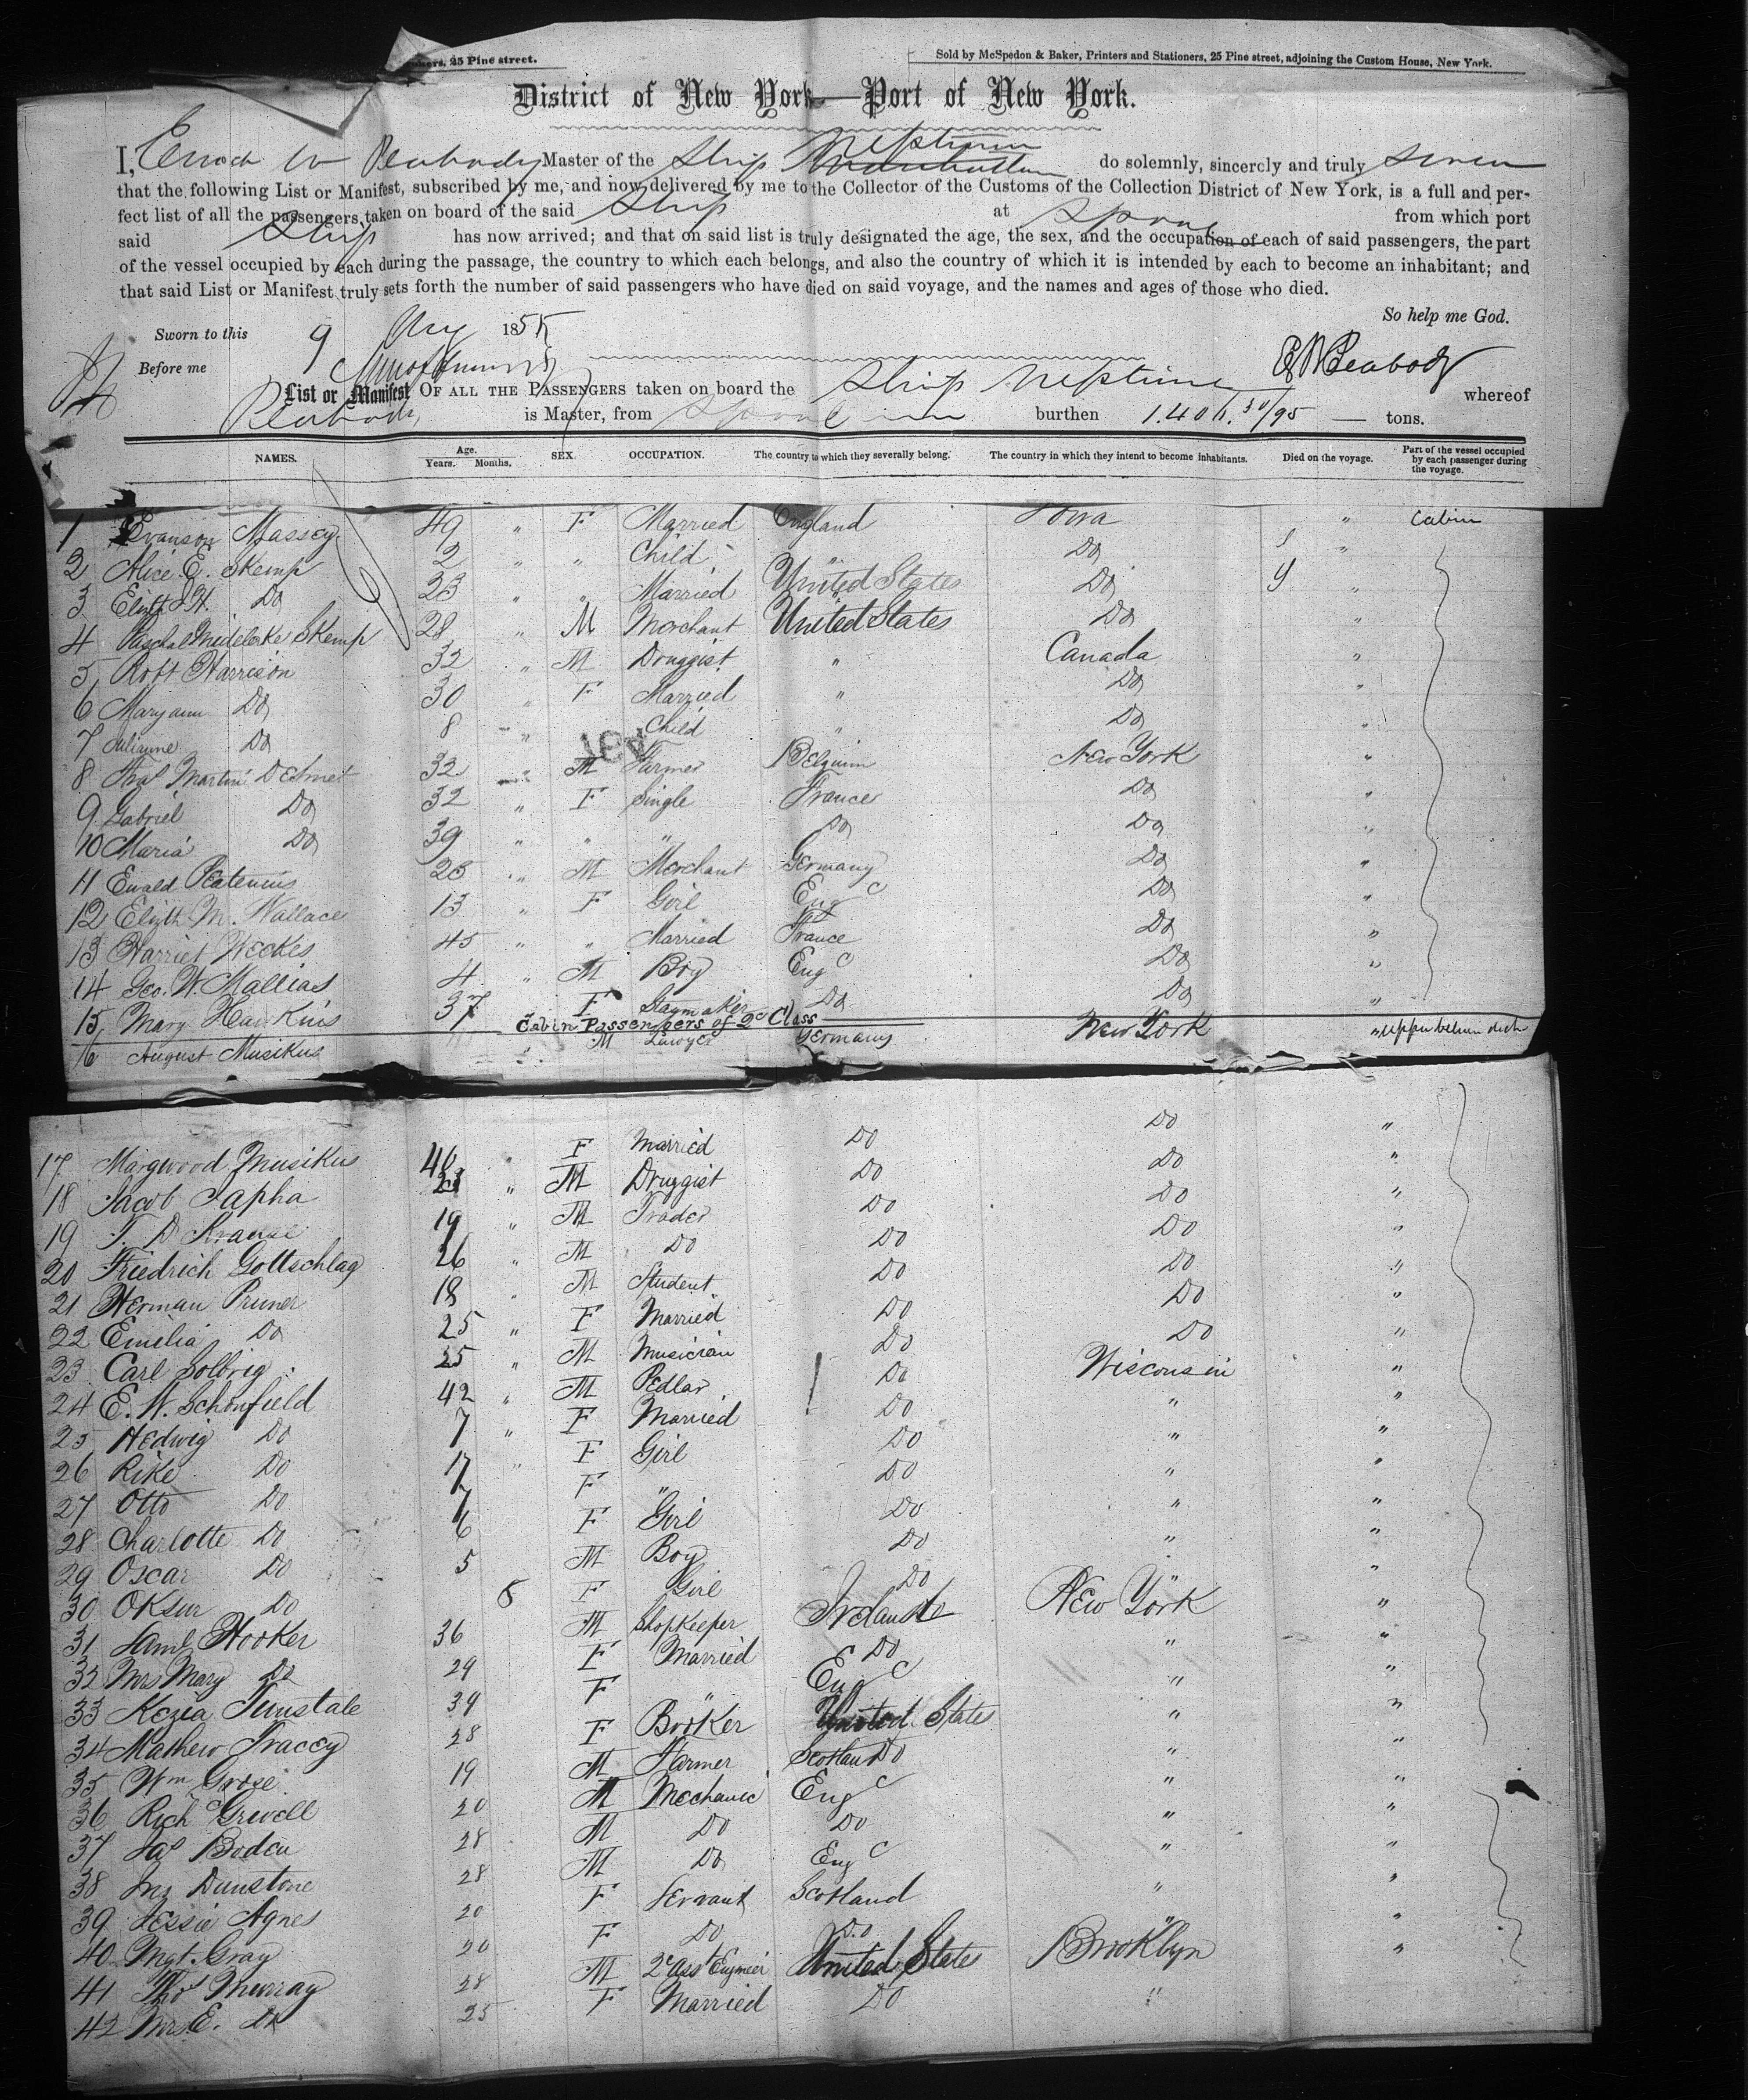 25 Pine street.
Sold by McSpedon & Baker, Printers and Stationers, 25 Pine street, adjoining the Custom House, New York.
District of New York—Port of New York.
I, Enoch W Peabody Master of the Ship Neptune do solemnly, sincerely and truly swear
that the following List or Manifest, subscribed by me, and now delivered by me to the Collector of the Customs of the Collection District of New York, is a full and per-
fect list of all the passengers taken on board of the said Ship at from which port
said Ship has now arrived; and that on said list is truly designated the age, the sex, and the occupation of each of said passengers, the part
of the vessel occupied by each during the passage, the country to which each belongs, and also the country of which it is intended by each to become an inhabitant; and
that said List or Manifest truly sets forth the number of said passengers who have died on said voyage, and the names and ages of those who died.
So help me God.
Sworn to this 9 Aug 1855
Before me E W Peabody
List or Manifest OF ALL THE PASSENGERS taken on board the Ship Neptune whereof
Peabody is Master, from burthen 1.406. 30/95 — tons.
NAMES. Age. Years. Months. SEX. OCCUPATION. The country to which they severally belong. The country in which they intend to become inhabitants. Died on the voyage. Part of the vessel occupied by each passenger during the voyage.
1 Evanson Massey 49 " F Married England Iowa " Cabin
2 Alice E. Skemp 2 " " Child " Do "
3 Elizth J H. Do 23 " " Married United States Do "
4 Paschal Skemp 28 " M Merchant United States Do "
5 Robt Harrison 32 " M Druggist " Canada "
6 Maryann Do 30 " F Married " Do "
7 Julianne Do 8 " Child " Do "
8 Martin DeSmet 32 " M Farmer Belguim New York "
9 Gabriel Do 32 " F Single France Do "
10 Maria Do 39 " " " Do Do "
11 Ewald 25 " M Merchant Germany Do "
12 Elizth M. Wallace 13 " F Girl Eng Do "
13 Harriet Weekes 45 " " Married France Do "
14 Geo. W. Mallias 4 " M Boy Eng Do "
15 Mary Hawkins 37 " F Staymaker Do Do "
Cabin Passengers of 2d Class
16 August Musikus " M Lawyer Germany New York
17 Margwood Musikus 40 " F Married Do Do "
18 Jacob Sapha " M Druggist Do Do "
19 F. D Krause 19 " M Trader Do Do "
20 Friedrich Gottschlag 26 " M Do Do Do "
21 Herman Pruner 18 " M Student Do Do "
22 Emilia Do 25 " F Married Do Do "
23 Carl Solbrig 25 " M Musician Do Do "
24 E. W. Schonfield 42 " M Pedlar Do Wisconsin "
25 Hedwig Do 7 " F Married Do " "
26 Rike Do " F Girl Do " "
27 Otto Do 7 F " Do " "
28 Charlotte Do 6 F Girl Do " "
29 Oscar Do 5 M Boy Do " "
30 Oksur Do 8 F Girl Do " "
31 Saml Hooker 36 M Shopkeeper Ireland New York "
32 Mrs Mary Do 29 F Married Do " "
33 Kezia Tunstale 39 F " Eng " "
34 Mathew Tracey 28 F Booker United States " "
35 Wm Grose 19 M Farmer Scotland Do " "
36 Rich Grivell 20 M Mechanic Eng " "
37 Jas Boden 28 M Do Do " "
38 Jno Dunstone 28 M Do Eng " "
39 Jessie Agnes 20 F Servant Scotland " "
40 Mgt. Gray 20 F Do Do " "
41 Thos Murray 28 M 2d Asst Engineer United States Brooklyn "
42 Mrs E. Do 25 F Married Do "